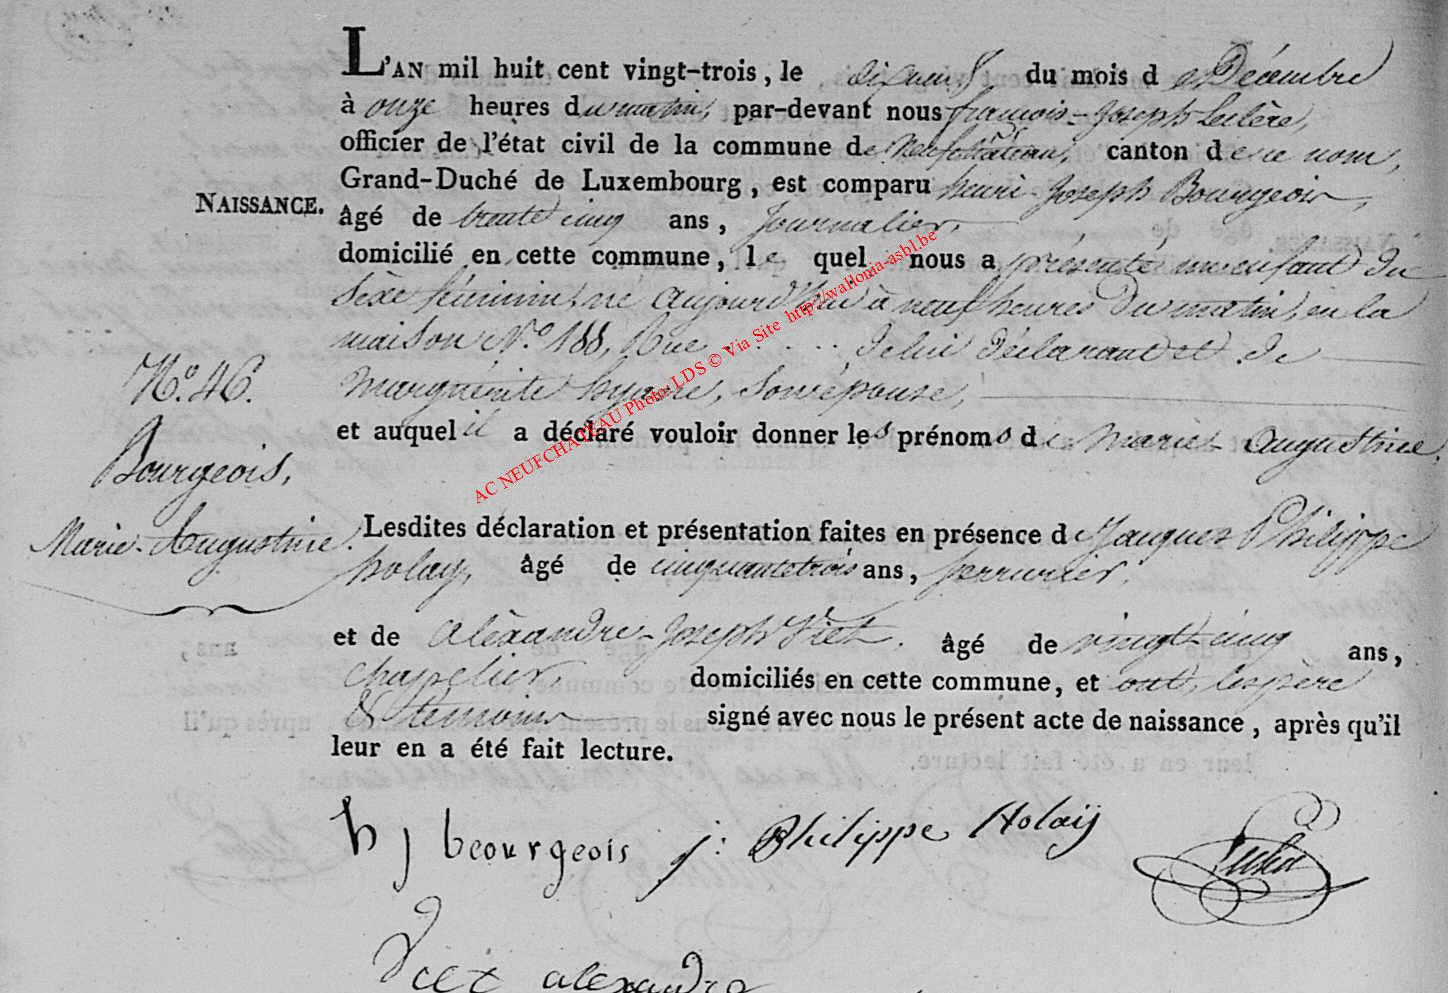 L'AN mil huit cent vingt-trois, le dix neuf du mois de Décembre
à onze heures du matin, par-devant nous francois-Joseph Leclère,
officier de l'état civil de la commune de Neufchateau, canton de ce nom,
Grand-Duché de Luxembourg, est comparu henri Joseph Bourgeois,
NAISSANCE.
âgé de trente cinq ans, Journalier,
domicilié en cette commune, le quel nous a présenté un enfant du
Sèxe féminin, né aujourd'hui à neuf heures du matin, en la
maison N.° 188, Rue . . . . . de lui déclarant et de
N.° 46.
Marguerite, Son épouse,
et auquel il a déclaré vouloir donner les prénoms de Marie-Augustine.
Bourgeois,
Marie-Augustine.
Lesdites déclaration et présentation faites en présence de Jacques Philippe
holay, âgé de cinquante trois ans, Serrurier,
et de Alèxandre-Joseph Diet, âgé de vingt cinq ans,
Chapelier, domiciliés en cette commune, et ont, les père
& temoins signé avec nous le présent acte de naissance, après qu'il
leur en a été fait lecture.
h j beourgeois j: Philippe Holaij
Diet alexandre
AC NEUFCHATEAU Photo LDS © Via Site http://wallonia-asbl.be